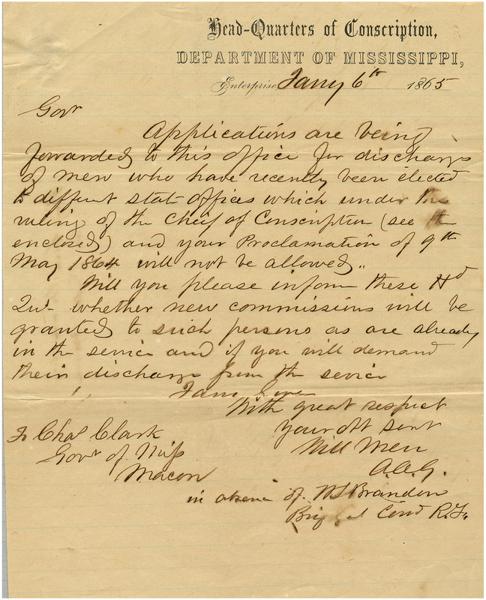 Head-Quarters of Conscription,
DEPARTMENT OF MISSISSIPPI,
Enterprise Jany 6th 1865
Govr
Applications are being
forwarded to this office for discharge
of men who have recently been elected
to diffent stat offices which under the
ruling of the Chief of Conscription (see the
enclosed) and your Proclamation of 9th
May 1864 will not be allowed.
Will you please inform these Hd
Qrs. whether new commissions will be
granted to such persons as are already
in the service and if you will demand
their discharge from the service
I am Gove
With great respect
your obt servt
Will
A.A.G.
To Chas Clark
Govr of Miss
Macon
in absence of W L Brandon
Brig